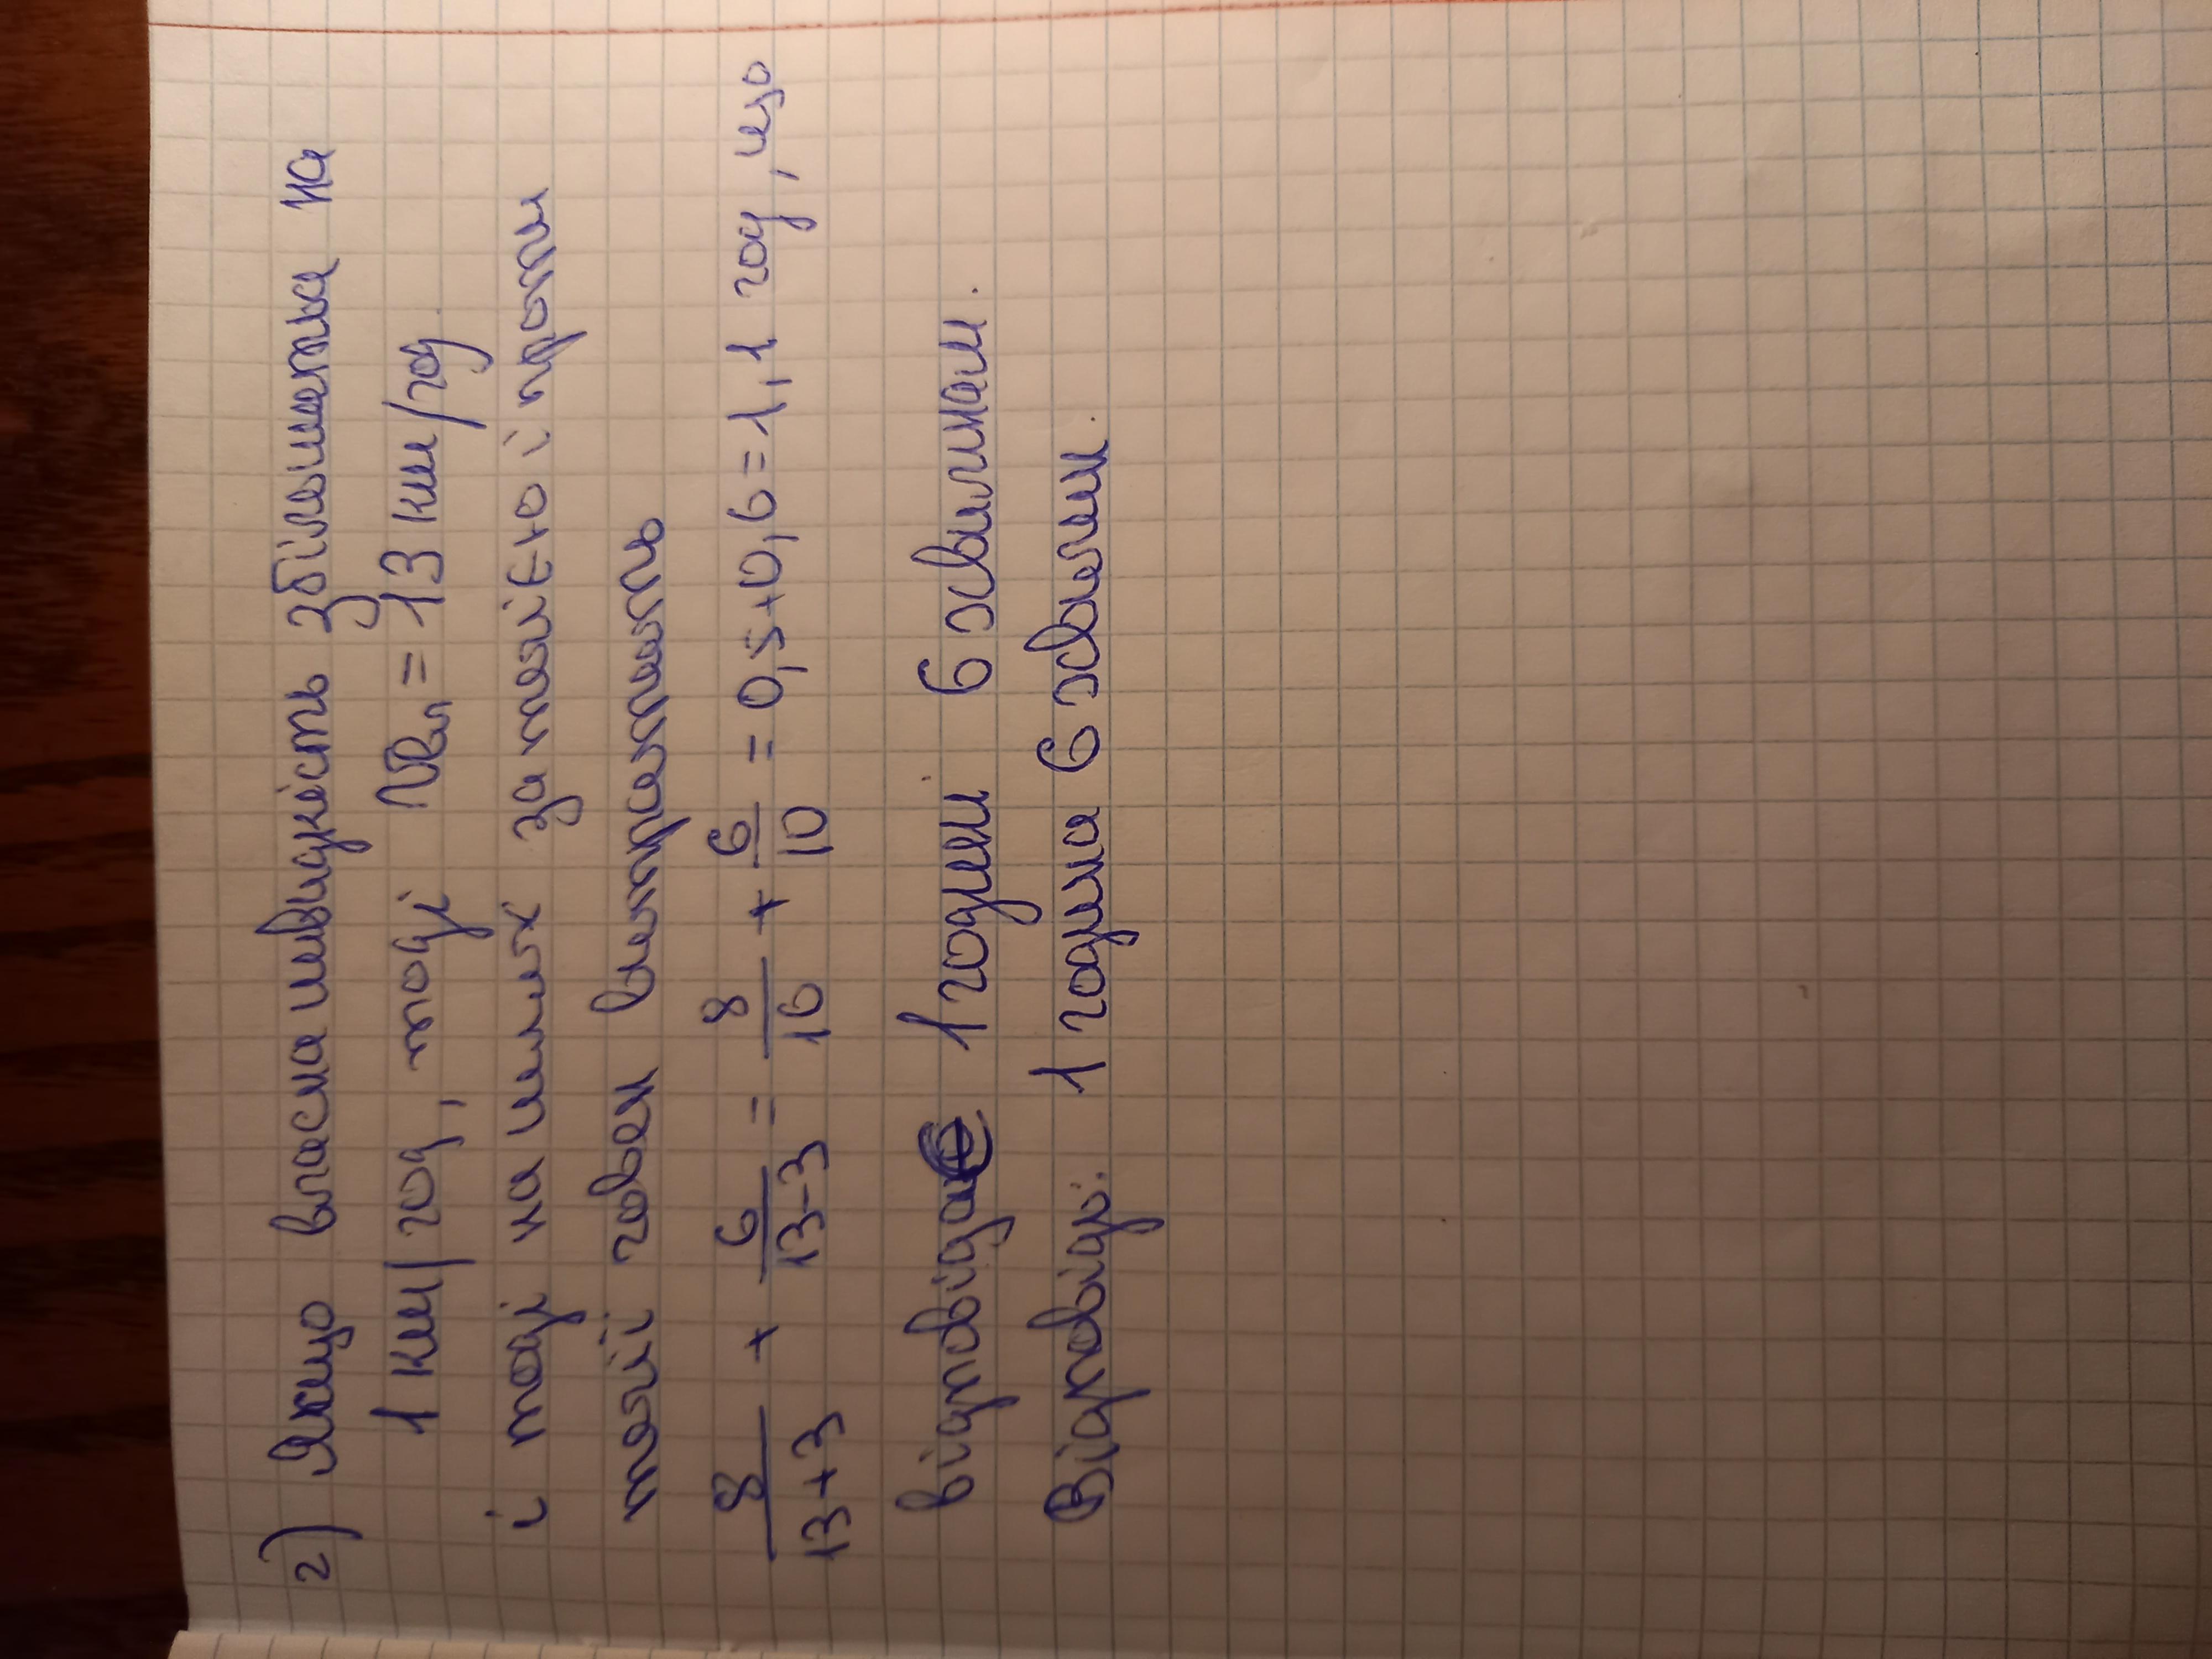 2) Якщо власна швидкість збільшиться на
1 км/год, тоді Vвл = 13 км/год.
і тоді на шлях за течією і проти
течії човен витратить
8/13+3 + 6/13-3 = 8/16 + 6/10 = 0,5+0,6=1,1 год, що
відповідає 1 годині 6 хвилинам.
Відповідь: 1 година 6 хвилин.